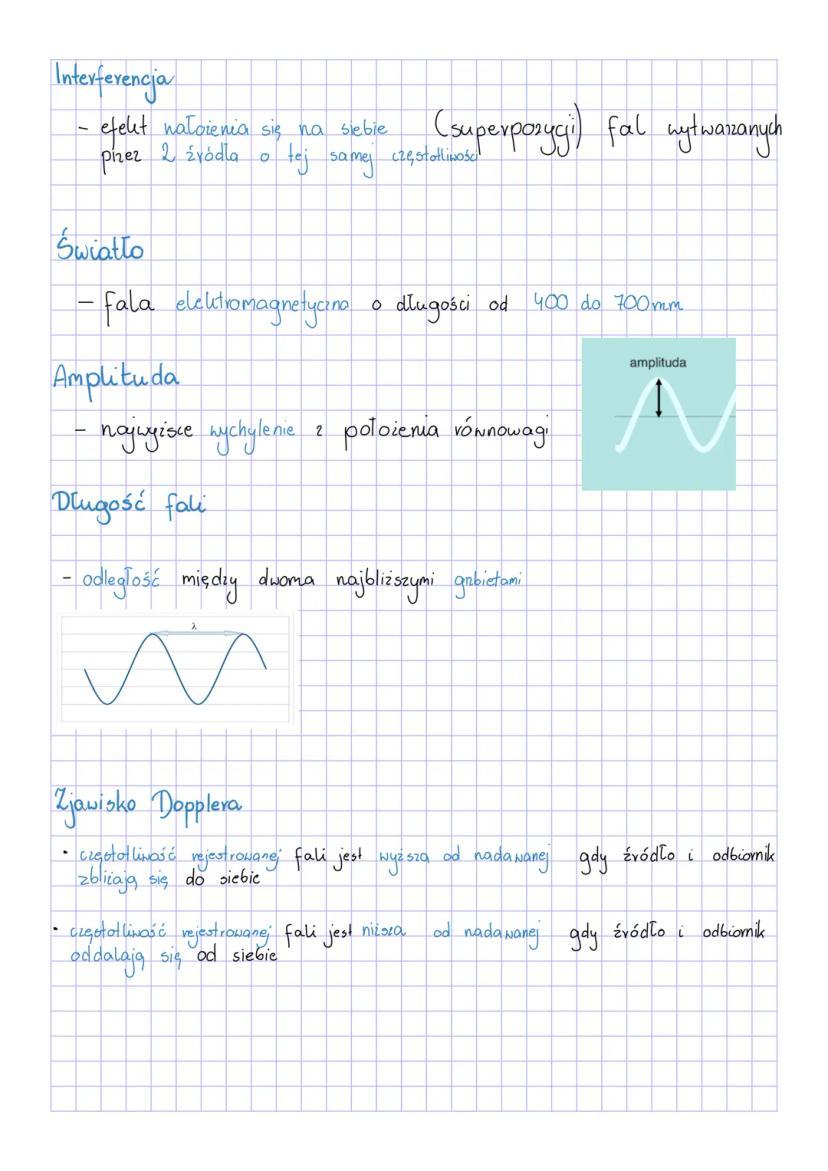 Interferencja
- efekt nałożenia się na siebie (superpozycji) fal wytwarzanych
przez 2 źródła o tej samej częstotliwości
Światło
- fala elektromagnetyczna o długości od 400 do 700 mm
amplituda
Amplituda
- najwyższe wychylenie z położenia równowagi
Długość fali
- odległość między dwoma najbliższymi grzbietami
λ
Zjawisko Dopplera
• częstotliwość rejestrowanej fali jest wyższa od nadawanej gdy źródło i odbiornik
zbliżają się do siebie
• częstotliwość rejestrowanej fali jest niższa od nadawanej gdy źródło i odbiornik
oddalają się od siebie